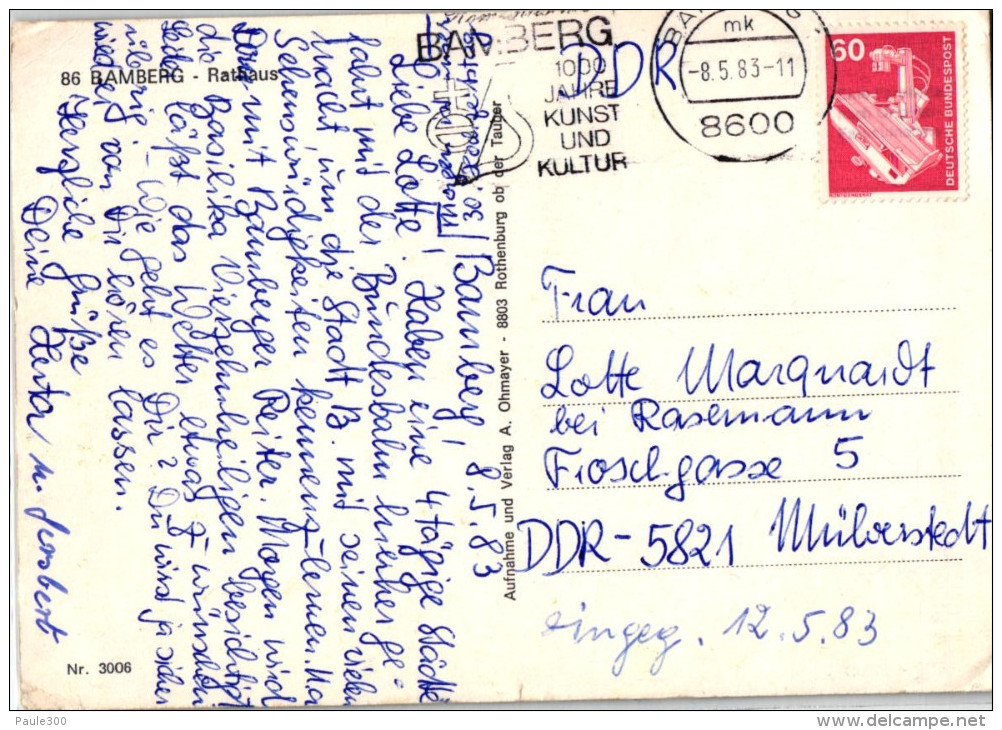 86 BAMBERG - Rathaus
BAMBERG
1000
JAHRE
KUNST
UND
KULTUR
DDR
mk
-8.5.83-11
8600
60
DEUTSCHE BUNDESPOST
Bamberg, 8.5.83
Liebe Lotte! Haben eine 4 tägige Städte
fahrt mit der Bundesbahn hierher ge-
macht um die Stadt B. mit seinen vielen
Sehenswürdigkeiten kennenz-lernen. Wa
Dom mit Bamberger Reiter. Morgen wird
die Basilika Vierzehnheiligen besichtigt
läßt das Wetter etwas z. wünschen
übrig. Wie geht es Dir? Du wirst ja sicher
wieder von Dir hören lassen.
Herzliche Grüße
Deine Herta u. Herbert
Aufnahme und Verlag A. Ohmayer - 8803 Rothenburg ob der Tauber
Frau
Lotte Marquardt
bei Rasemann
Froschgasse 5
DDR-5821 Mülverstedt
eingeg. 12.5.83
Nr. 3006
Paule300
www.delcampe.net